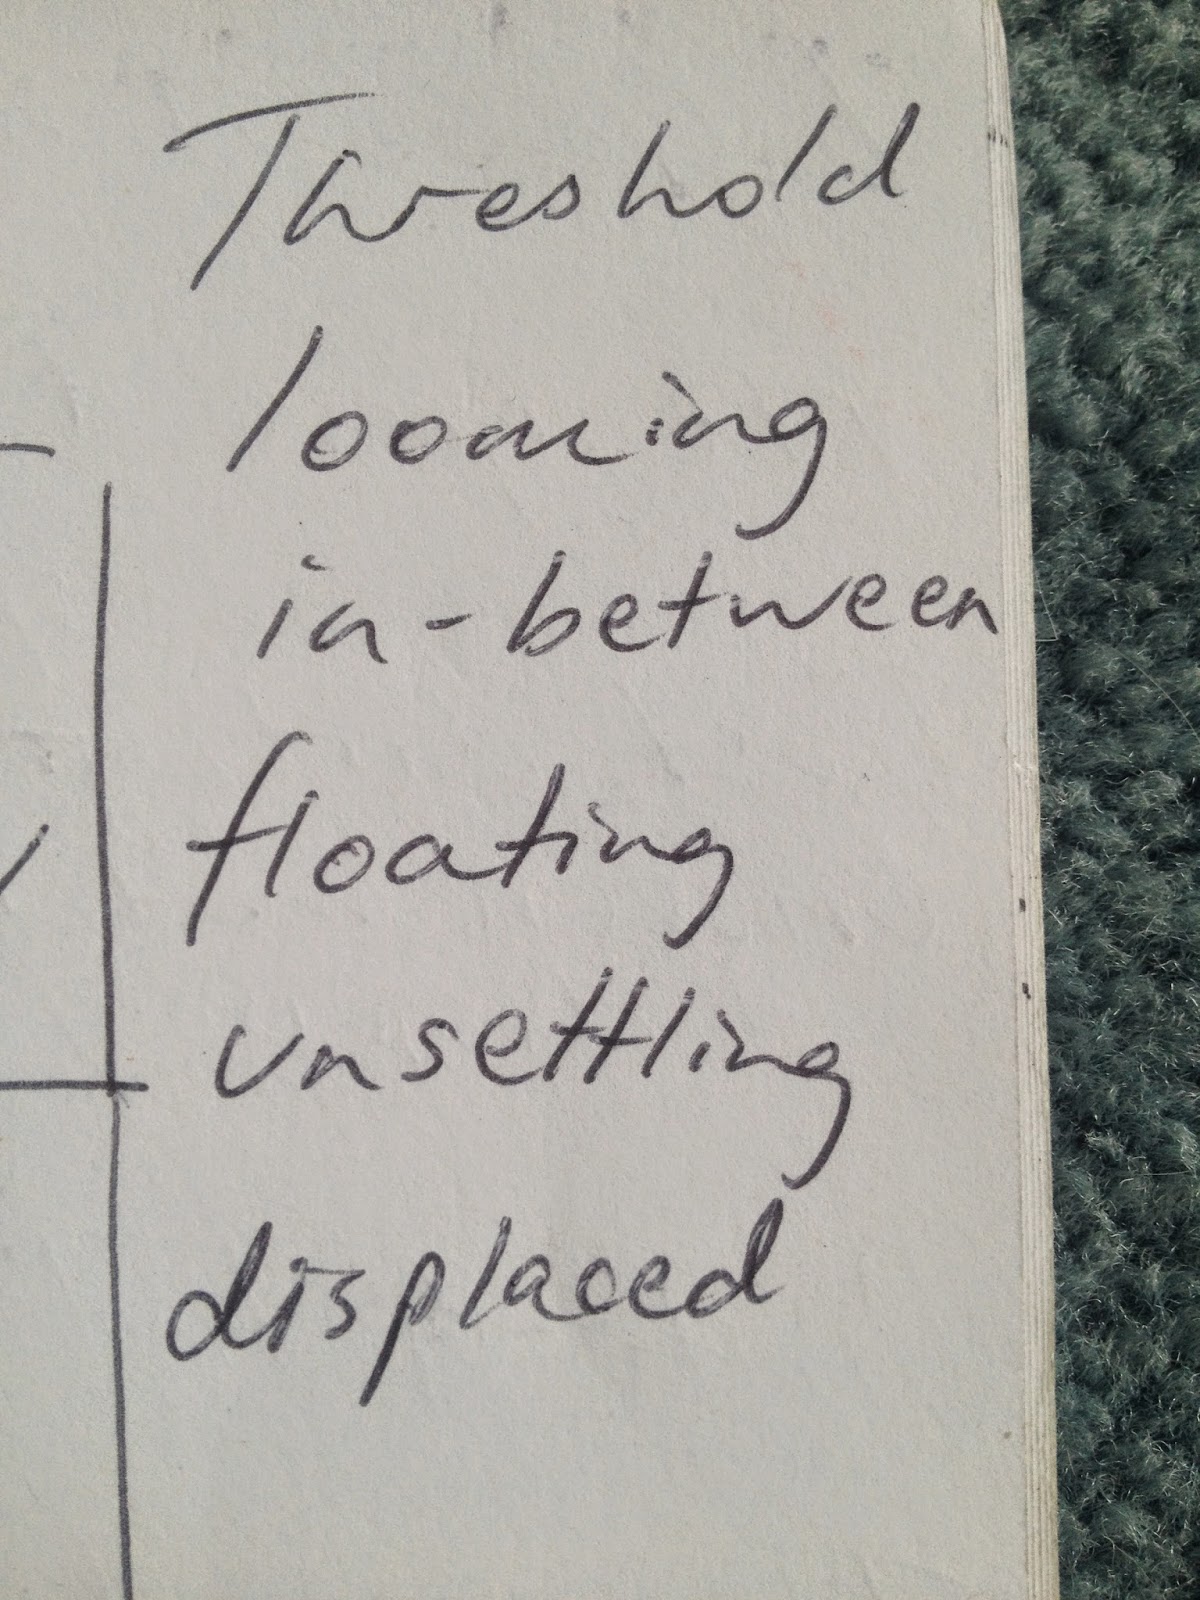 Threshold
looming
in-between
floating
unsettling
displaced